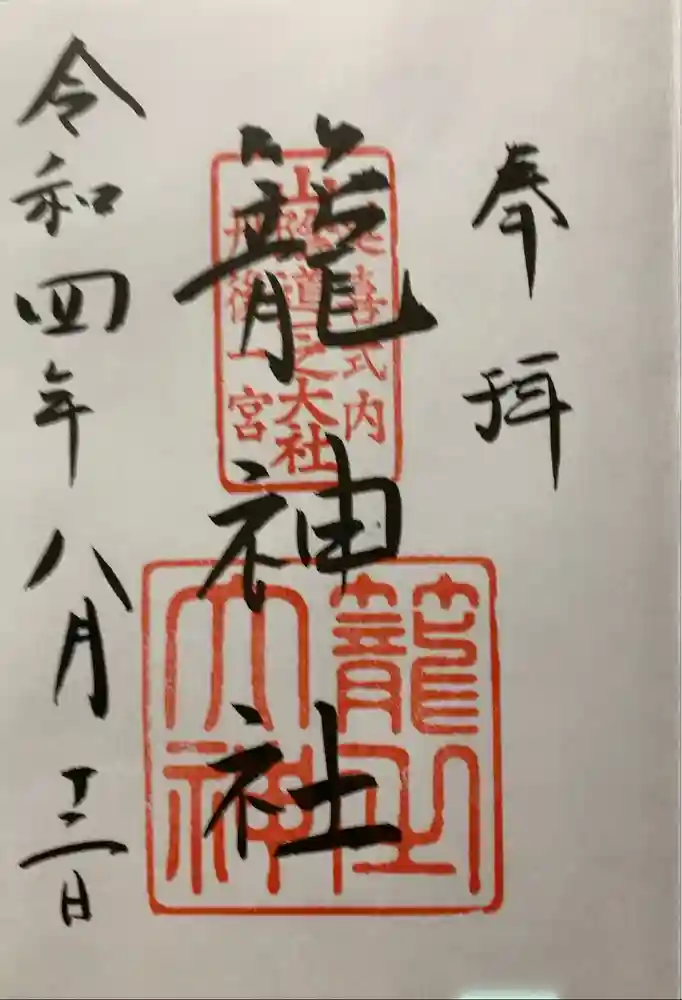 奉拝
延喜式内
山陰道之大社
丹後一宮
籠神社
籠之
大神
令和四年八月十三日